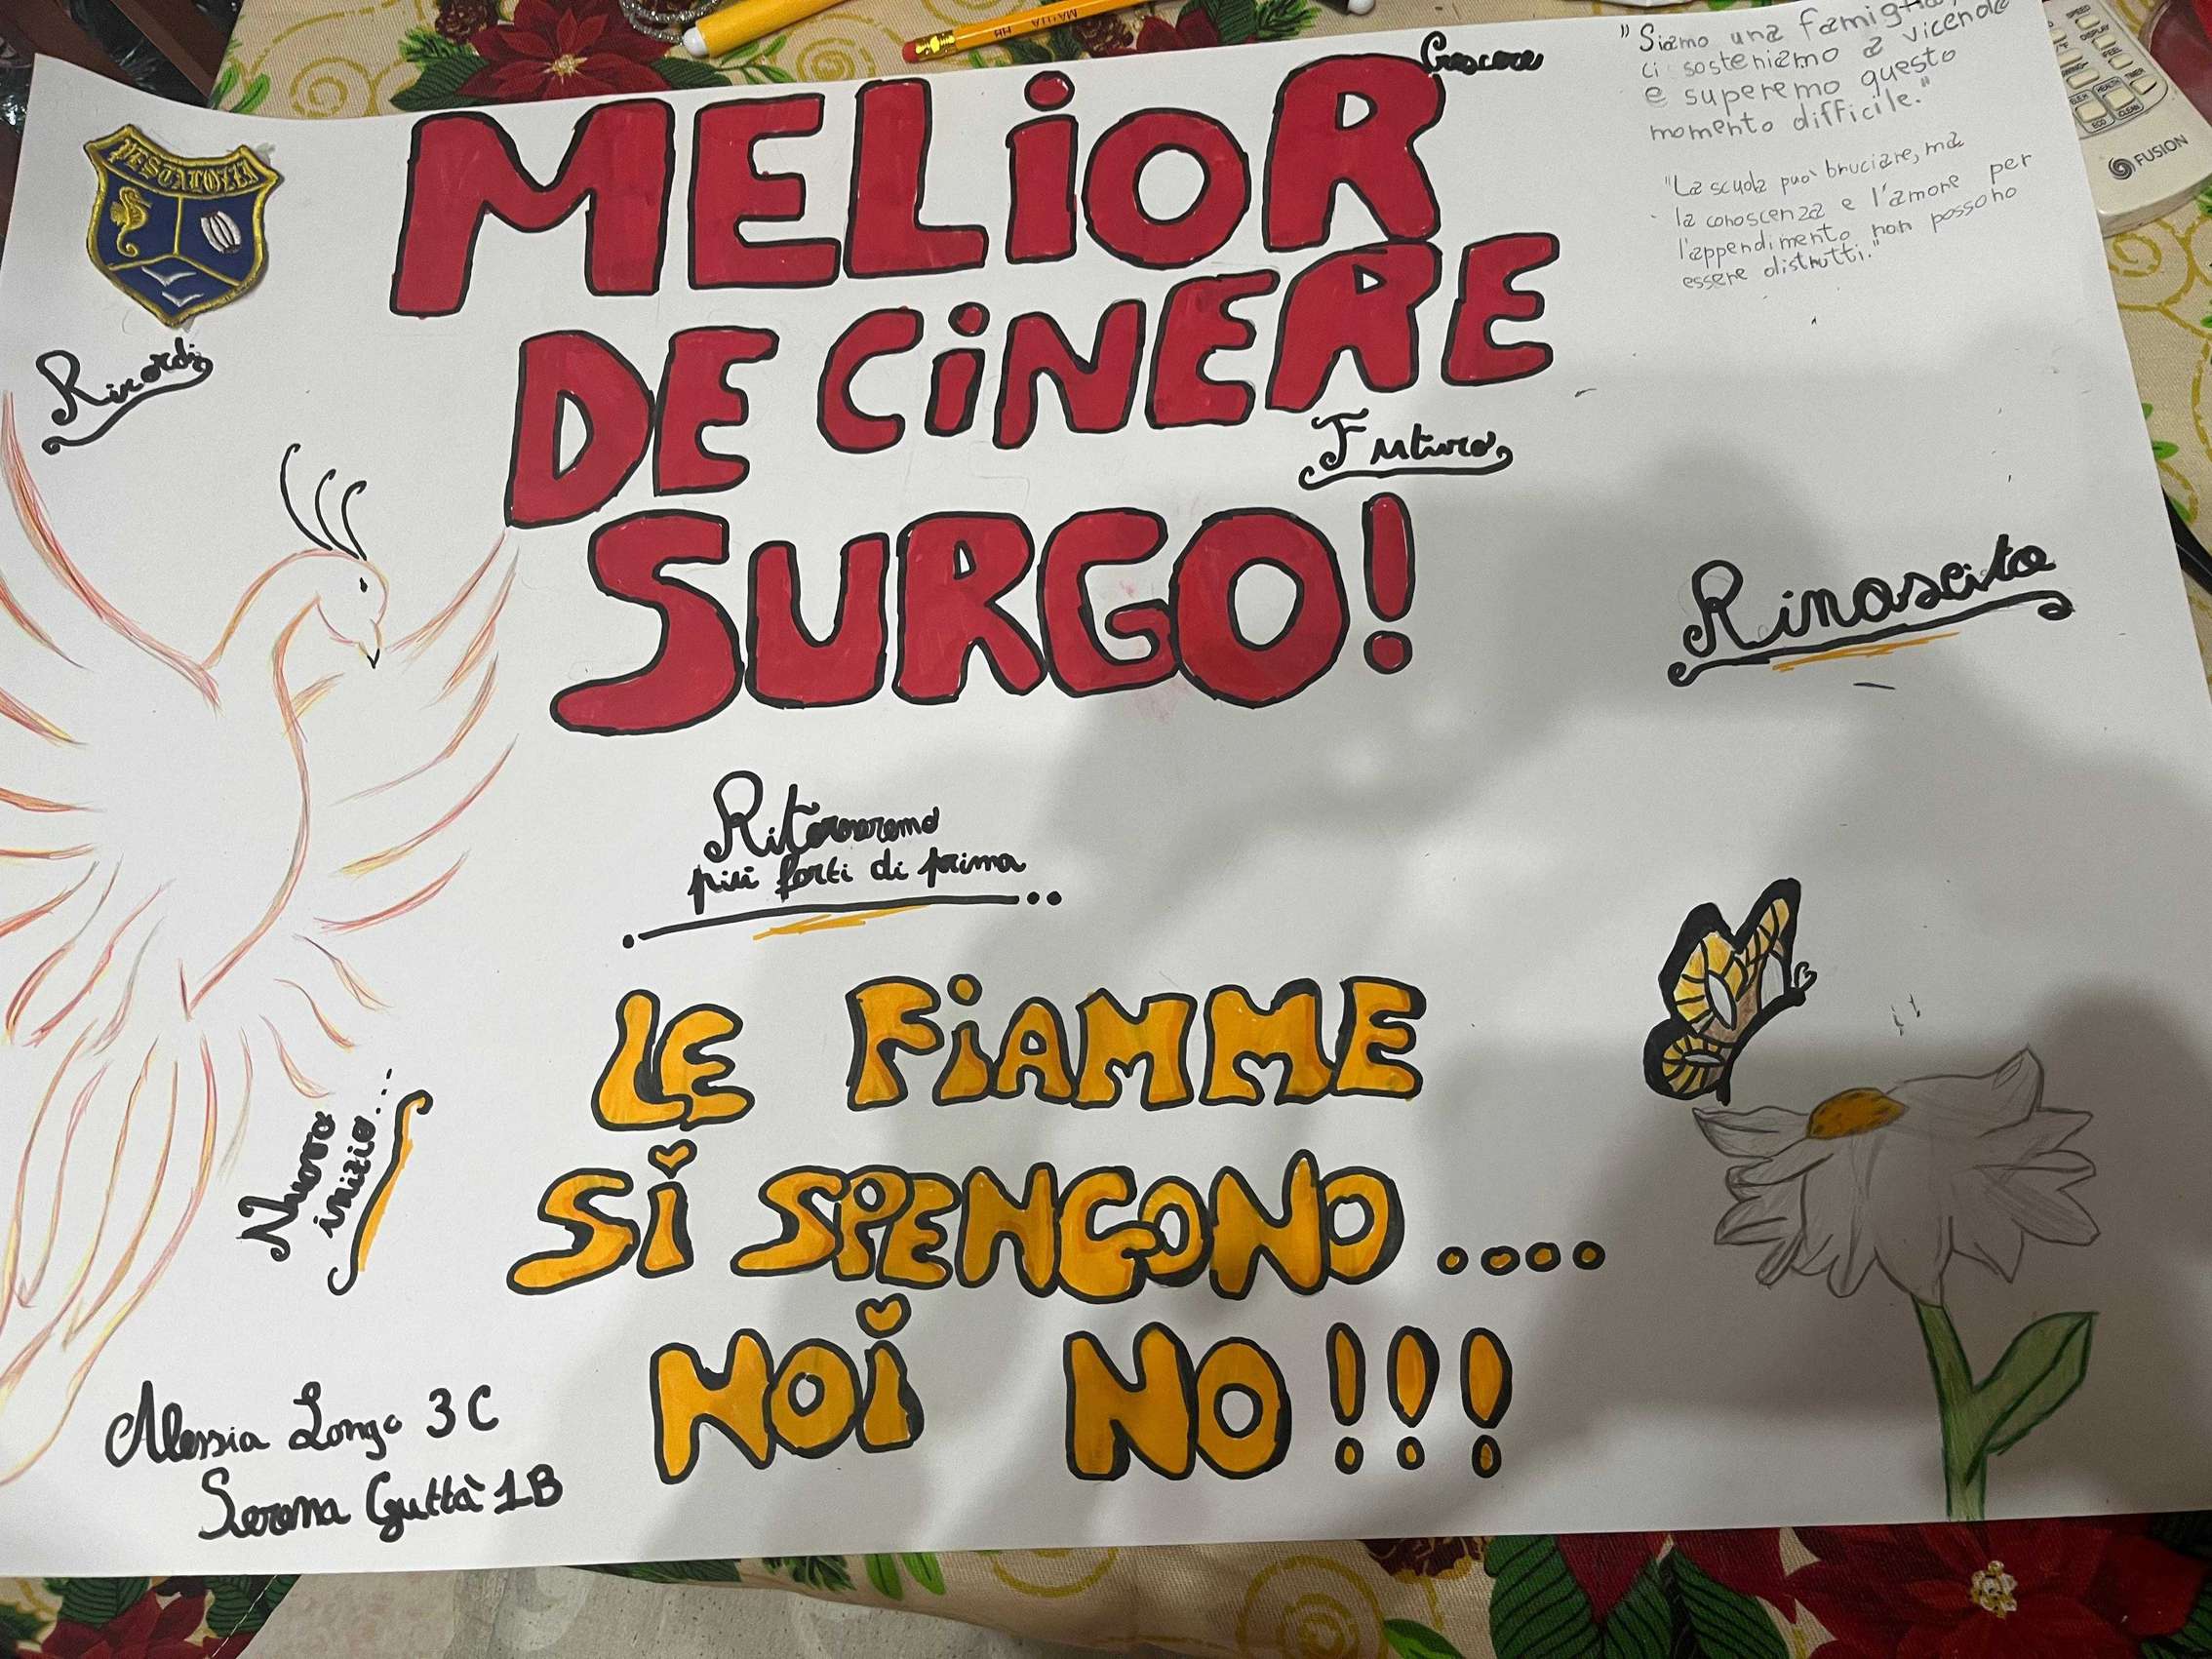 PESTALOZZI
MELiOR
DE CiNERE
SURGO!
Crescere
"Siamo una famiglia,
ci sosteniamo a vicenda
e superemo questo
momento difficile."
"La scuola può bruciare, ma
la conoscenza e l'amore per
l'appendimento non possono
essere distrutti."
Ricordi
Futuro
Rinascita
Ritorneremo
più forti di prima
LE FiAMME
Si SPENGONO....
NOi NO!!!
Nuovo
inizio...
Alessia Longo 3C
Serena Guttà 1B
MH
FUSION
SPEED
DISPLAY
iFEEL
TIMER
HEALTH
ECO
CLEAN